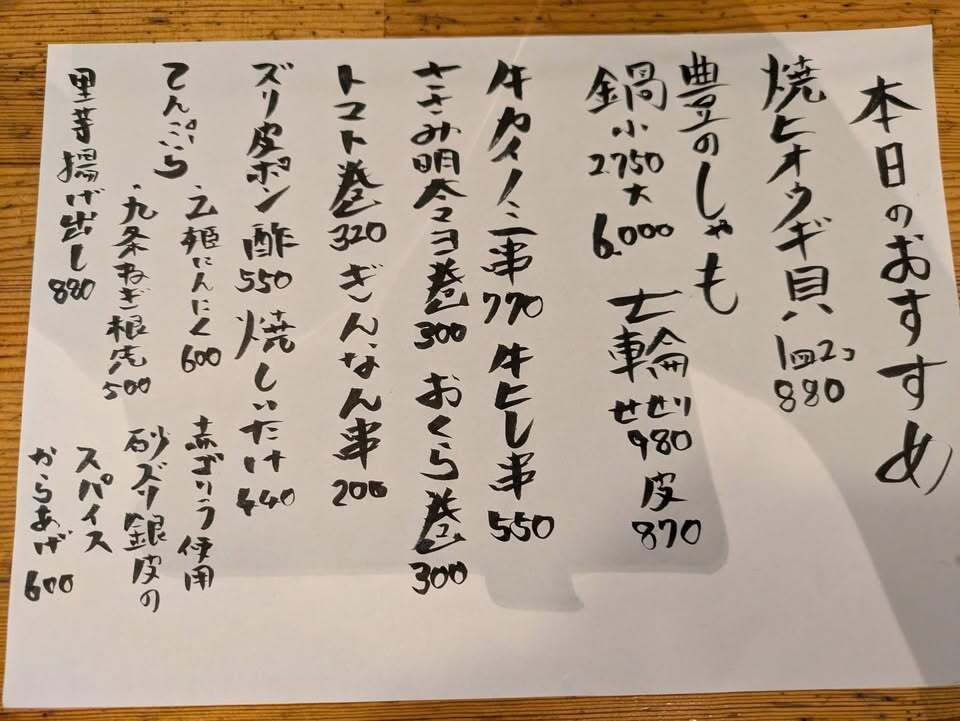 本日のおすすめ
焼ヒオウギ貝 1皿2コ 880
豊のしゃも
鍋 小 2.750 大 6.000
七輪 せせり 980 皮 870
牛カイノミ串 770 牛ヒレ串 550
ささみ明太マヨ巻 300 おくら巻 300
トマト巻 320 ぎんなん串 200
ズリ皮ポン酢 550 焼しいたけ 440
てんぷら
・乙姫にんにく 600
・九条ねぎ根 500
里芋揚げ出し 880
使用
砂ズリ銀皮の
スパイス
からあげ 600